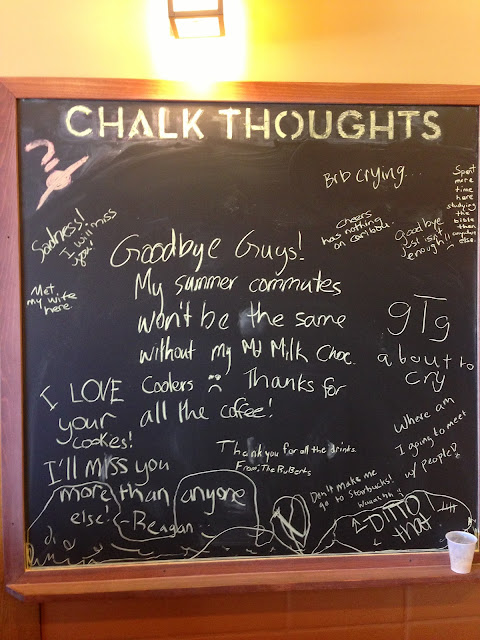 CHALK THOUGHTS
?
Brb crying...
Spent
more
time
here
studying
the
bible
than
anywhere
else.
Sadness!
I will miss
you!
cheers
has nothing
on caribou.
goodbye
just isn't
enough!!
Met
my wife
here.
Goodbye Guys!
My summer commutes
won't be the same
without my Md Milk Choc.
Coolers :( Thanks for
all the coffee!
gTg
about to
cry
I LOVE
your
cookes!
I'll miss you
more than anyone
else! -Reagan
Where am
I going to meet
w/ people?
Thank you for all the drinks
From: The RuBerts
Don't make me
go to Starbucks!
Waaaahh!
^-DITTO
that!